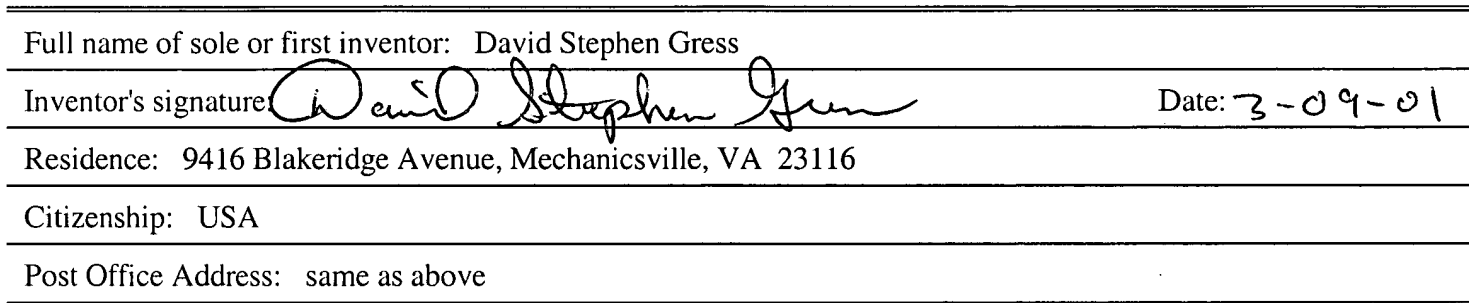 Full name of sole or first inventor: David Stephen Gress
Inventor's signature: David Stephen Gress Date: 3-09-01
Residence: 9416 Blakeridge Avenue, Mechanicsville, VA 23116
Citizenship: USA
Post Office Address: same as above